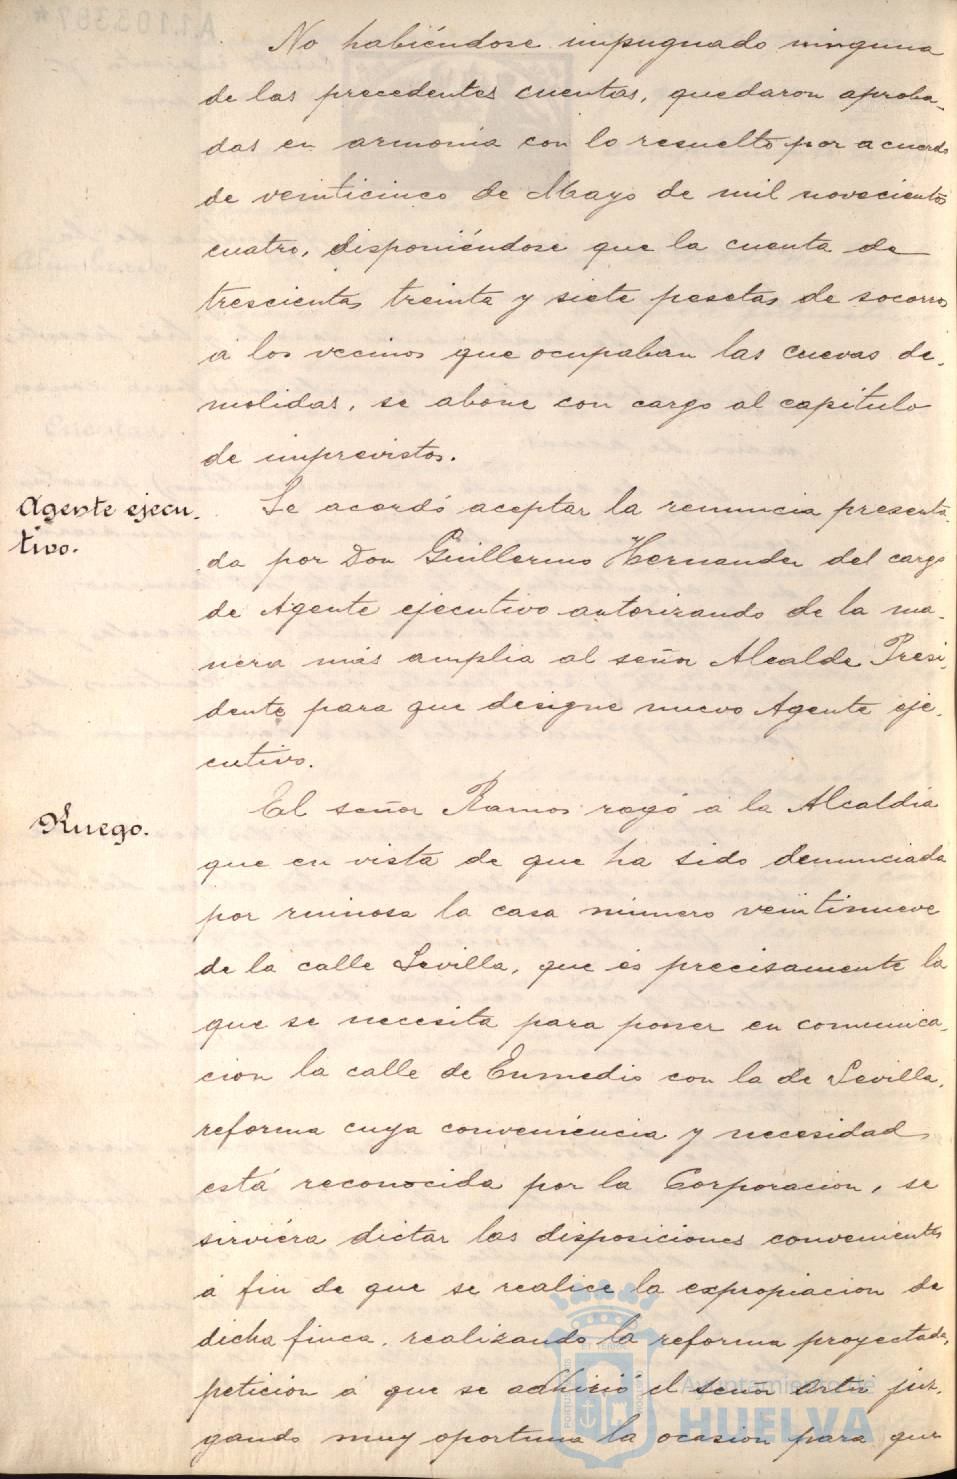 No habiéndose impugnado ninguna
de las precedentes cuentas, quedaron aproba-
das en armonia con lo resuelto por acuerdo
de veinticinco de Mayo de mil novecientos
cuatro, disponiéndose que la cuenta de
trescientas treinta y siete pesetas de socorros
á los vecinos que ocupaban las cuevas de-
molidas, se abone con cargo al capitulo
de imprevistos.
Agente ejecu-
tivo.
Se acordó aceptar la renuncia presenta-
da por Don Guillermo Hernandez del cargo
de Agente ejecutivo autorizando de la ma-
nera más amplia al señor Alcalde Presi-
dente para que designe nuevo Agente eje-
cutivo.
Ruego.
El señor Ramos rogó á la Alcaldia
que en vista de que ha sido denunciada
por ruinosa la casa número veintinueve
de la calle Sevilla, que es precisamente la
que se necesita para poner en comunica-
cion la calle de Enmedio con la de Sevilla,
reforma cuya conveniencia y necesidad
está reconocida por la Corporacion, se
sirviéra dictar las disposiciones convenientes
á fin de que se realice la expropiacion de
dicha finca, realizando la reforma proyectada,
peticion á que se adhirió el señor juz-
gando muy oportuna la ocasion para que
Ayuntamiento de
HUELVA